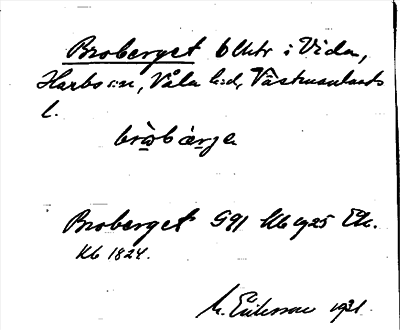 Broberget bebutr i Vida,
Harbo s:n, Våla h:d, Västmanlands
l.
brò̱bæ̀rje
Broberget G91 Kb 1925 Ek.
Kb 1824.
M. Eriksson 1931